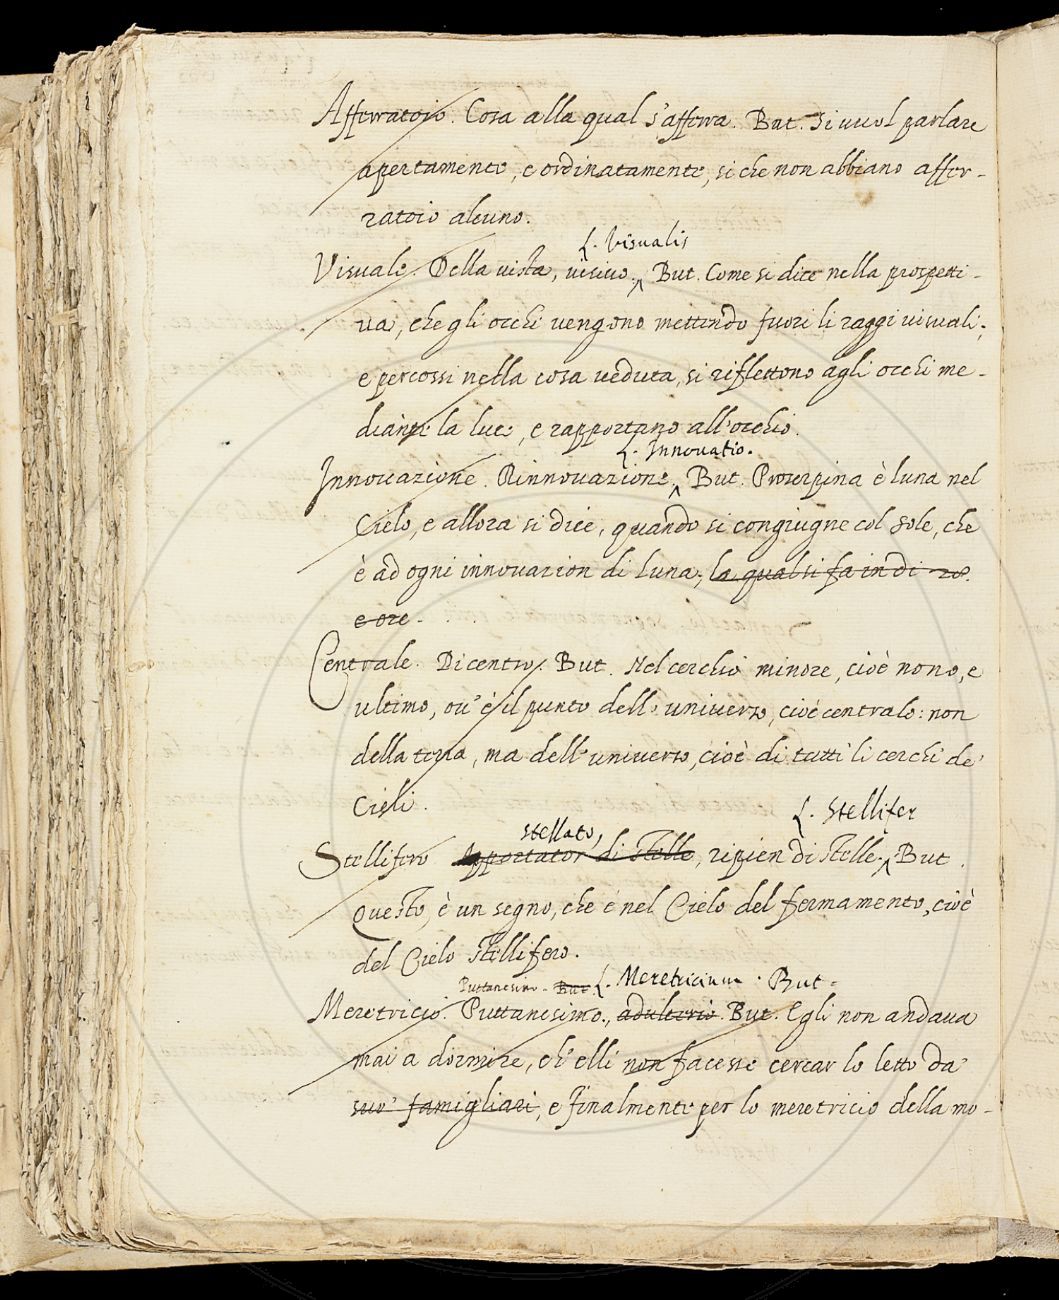 Afferratoio. Cosa alla qual s'afferra. But. Si vuol parlare
apertamente, e ordinatamente, si che non abbiano affer-
ratoio alcuno.
L. Visualis
Visuale. Della vista, visivo. But. Come si dice nella prospetti-
va, che gli occhi vengono mettendo fuori li raggi visuali,
e percossi nella cosa veduta, si riflettono agli occhi me-
diante la luce, e rapportano all'occhio.
L. Innovatio.
Innovazione. Rinnovazione. But. Proserpina è luna nel
Cielo, e allora si dice, quando si congiugne col sole, che
è ad ogni innovazion di luna, la qual si fa in dì 28.
e ore.
Centrale. Di centro. But. Nel cerchio minore, cioè nono, e
ultimo, ov' è il punto dell' universo, cioè centrale: non
della terra, ma dell' universo, cioè di tutti li cerchi de'
Cieli.
L. Stellifer
stellato,
Stellifero Apportator di stelle, ripien di stelle. But.
Questo è un segno, che è nel Cielo del fermamento, cioè
del Cielo stellifero.
Puttanesimo. But L. Meretricium. But.
Meretricio. Puttanesimo, adulterio. But. Egli non andava
mai a dormire, ch'elli non facesse cercar lo letto da'
suo' famigliari, e finalmente per lo meretricio della mo-